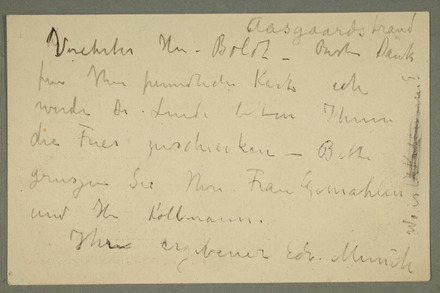 Aasgaardstrand
Verehrter Hr. Boldt – Besten Dank
für Ihre freundliche Karte ich
werde Dr. Linde bitten Ihnen
die zuschicken – Bitte
grüszen Sie Ihre Frau Gemahlin
und Hr Kollmann.
Ihr ergebener Edv. Munch